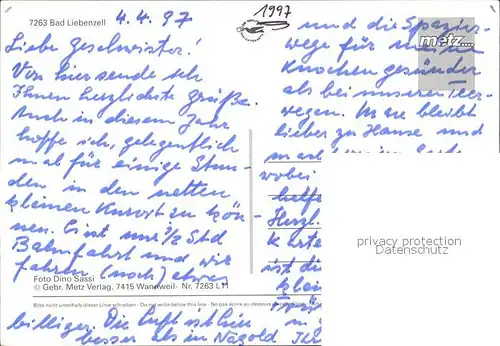 7263 Bad Liebenzell
4.4.97
1997
Liebe Geschwister!
Von hier sende ich
Ihnen herzlichste Grüße.
Auch in diesem Jahr
hoffe ich, gelegentlich
mal für einige Stun-
den in den netten
kleinen Kurort zu kön-
nen. Sind nur 1/2 Std
Bahnfahrt und wir
fahren (noch) etwas
Foto Dino Sassi
© Gebr. Metz Verlag. 7415 Wannweil · Nr. 7263 L11
Bitte nicht unterhalb dieser Linie schreiben · Do not write below this line · Ne pas écrire au dessous
billiger. Die Luft ist hier
besser als in Nagold
und die Spazier-
wege für meine
Knochen gesünder
als bei unseren Teer-
wegen. Man bleibt
lieber zu Hause und
wobei
helfe
Herzl.
Karte
ist die
klein
metz
privacy protection
Datenschutz